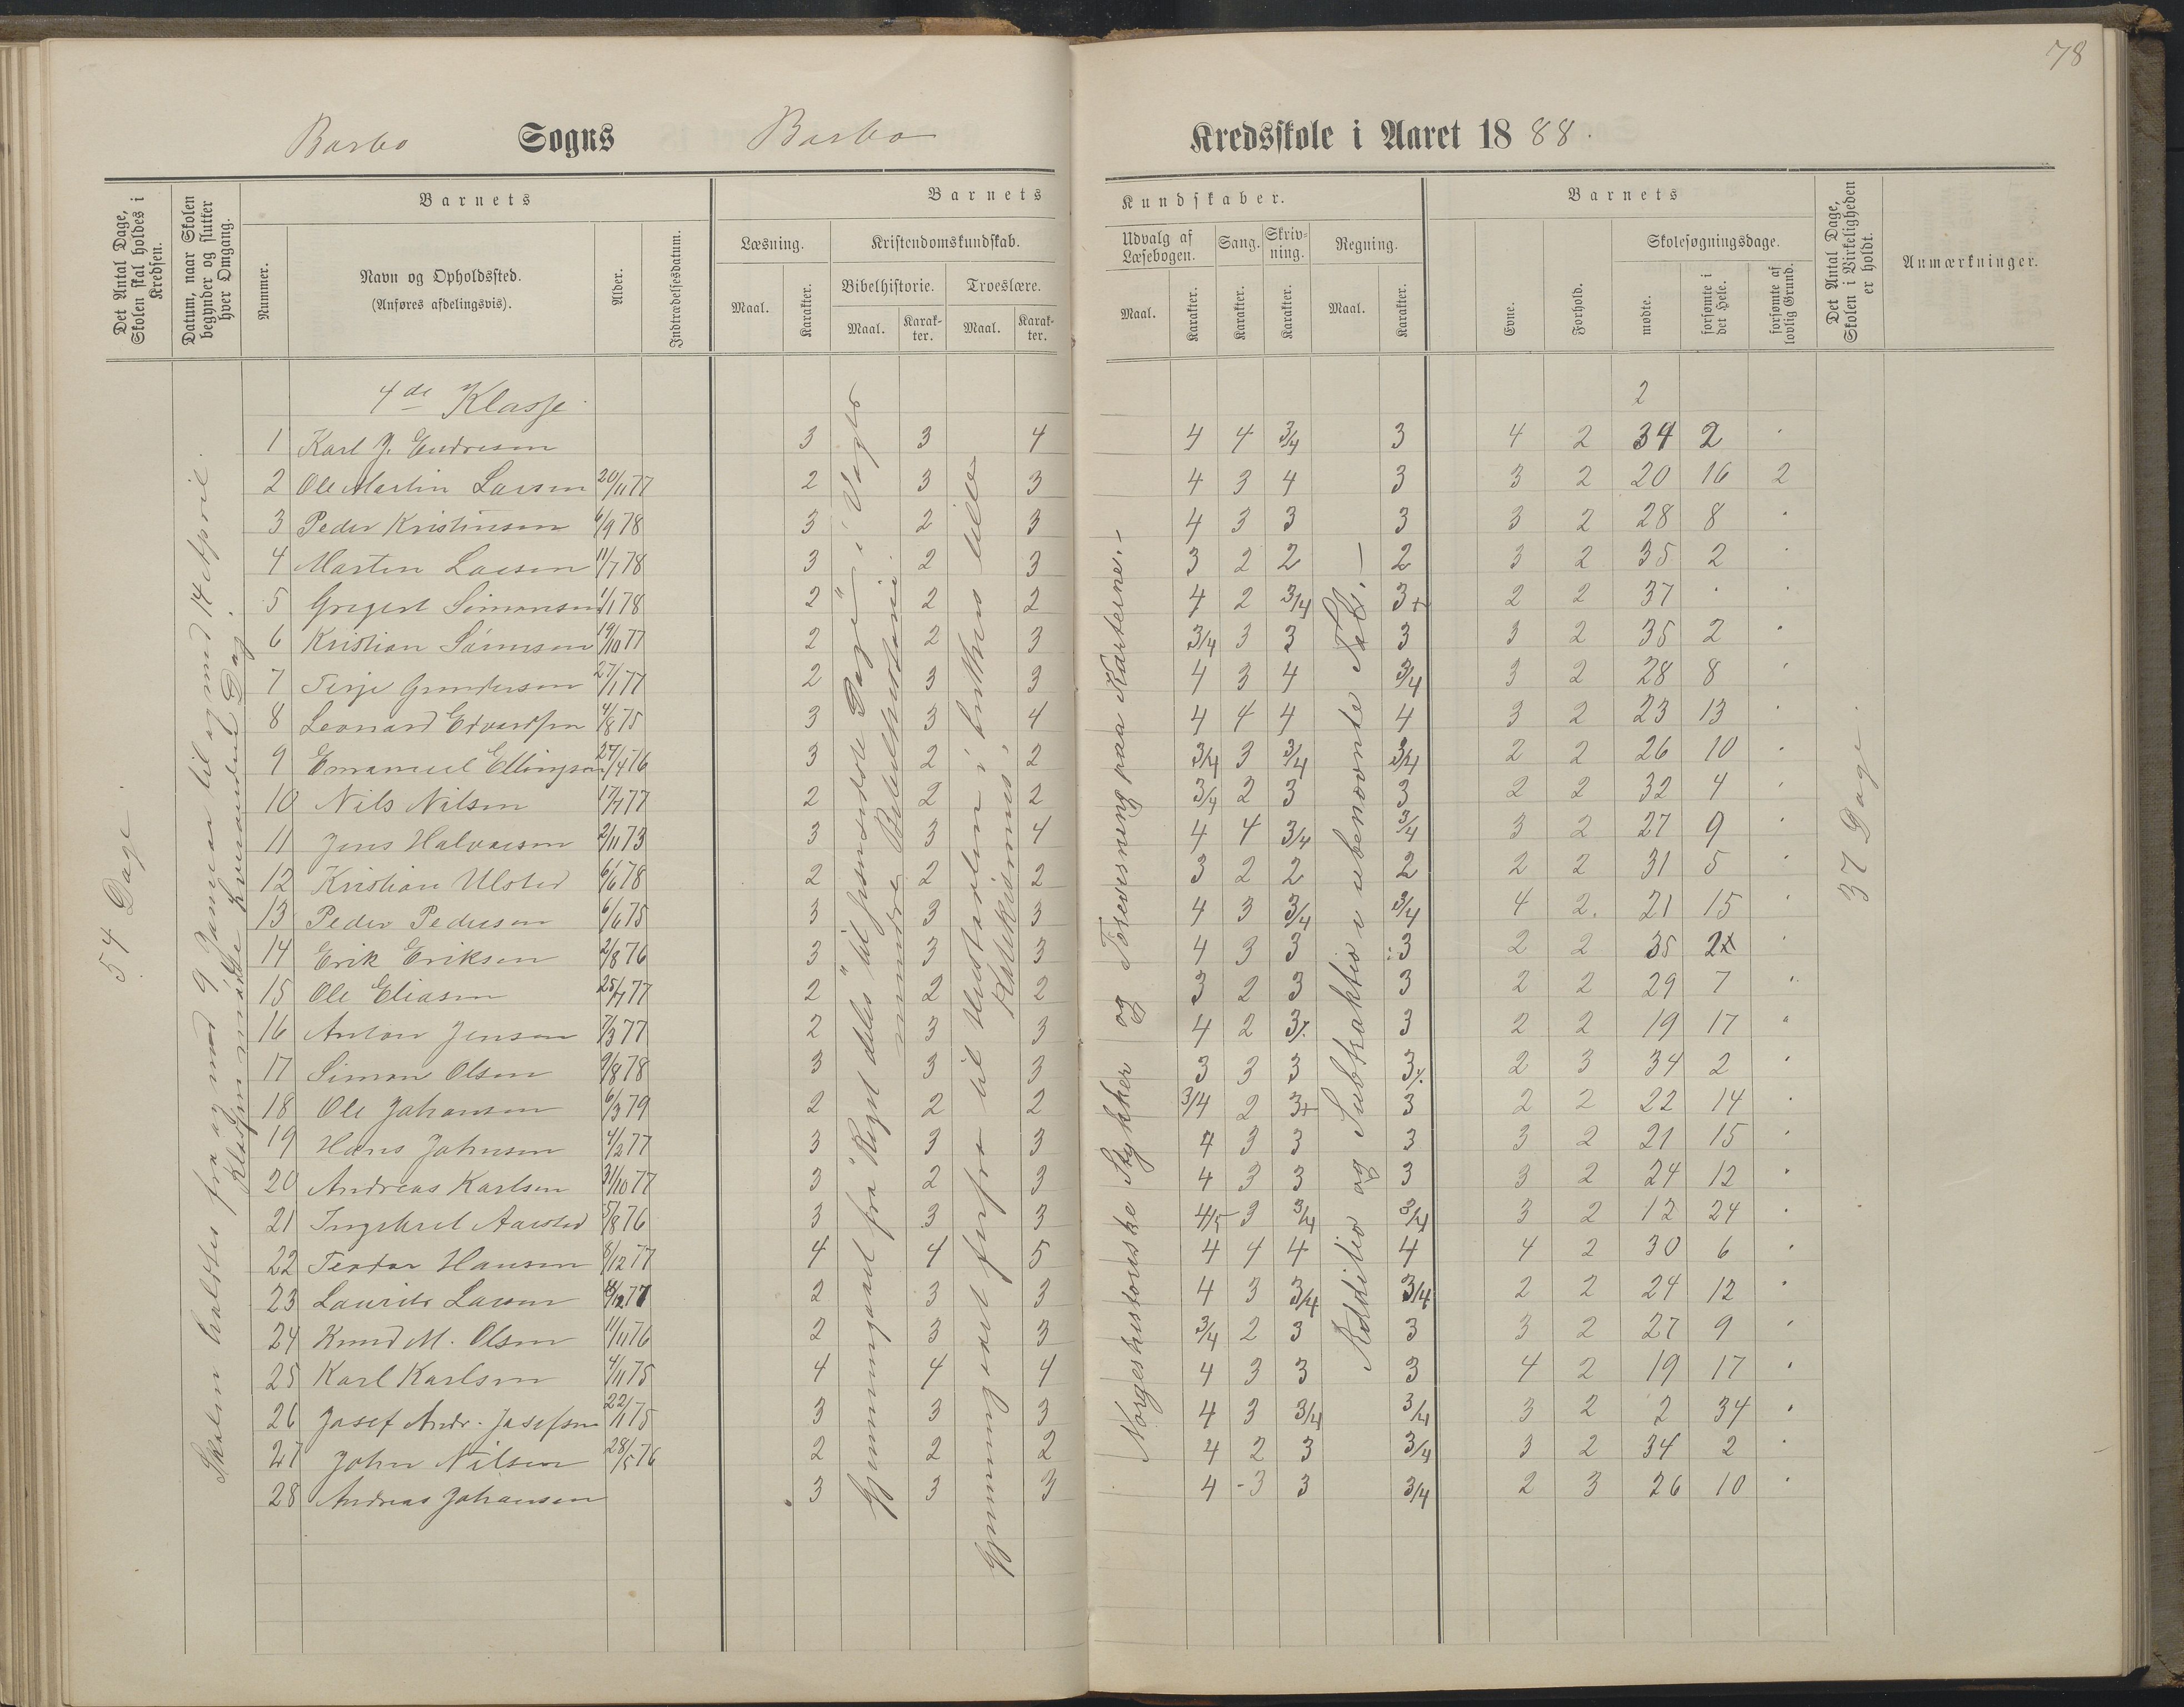 78
Barbo Sogns Barbo Kredsskole i Aaret 1888.
Det Antal Dage, Skolen skal holdes i Kredsen.
Datum, naar Skolen begynder og slutter hver Omgang.
Barnets
Nummer.
Navn og Opholdssted.
(Anføres afdelingsvis).
Alder.
Indtrædelsesdatum.
Barnets Kundskaber.
Læsning.
Maal.
Karakter.
Kristendomskundskab.
Bibelhistorie.
Maal.
Karakter.
Troeslære.
Maal.
Karakter.
Udvalg af Læsebogen.
Maal.
Karakter.
Sang.
Karakter.
Skrivning.
Karakter.
Regning.
Maal.
Karakter.
Barnets
Evne.
Forhold.
Skolesøgningsdage.
mødte.
forsømte i det Hele.
forsømte af lovlig Grund.
Det Antal Dage, Skolen i Virkeligheden er holdt.
Anmærkninger.
54 Dage.
Skolen holdtes fra og med 9 Januar til og med 14 April.
Klassen mødte hverandend Dag.
Gjennemgaaet fra "Røgst deles" til "Josmsidste Dage" i Vogts
mindre Bibelhistorie
Gjennemgaaet forfra til Udtalen i Luthers lille
Katekismus,
Norgeshistoriske Stykker og Forevisning paa Karterne.-
Addition og Subtraktion i ubenævnte Tal.-
37 Dage.
4de Klasse 2
1 Karl J. Endresen 3 3 4 4 4 3/4 3 4 2 34 2 "
2 Ole Martin Larsen 20/11 77 2 3 3 4 3 4 3 3 2 20 16 2
3 Peder Kristensen 6/9 78 3 2 3 4 3 3 3 3 2 28 8 "
4 Martin Larsen 11/7 78 3 2 3 3 2 2 2 3 2 35 2 "
5 Gregert Simonsen 1/1 78 2 2 2 4 2 3/4 3+ 2 2 37 " "
6 Kristian Sørensen 19/10 77 2 2 3 3/4 3 3 3 3 2 35 2 "
7 Terje Gundersen 27/1 77 2 3 3 4 3 4 3/4 3 2 28 8 "
8 Leonard Edvardsen 4/8 75 3 3 4 4 4 4 4 3 2 23 13 "
9 Emanuel Ellingsen 27/4 76 3 2 2 3/4 3 3/4 3/4 2 2 26 10 "
10 Nils Nilsen 17/7 77 2 2 2 3/4 2 3 3 2 2 32 4 "
11 Jens Halvorsen 2/11 73 3 3 4 4 4 3/4 3/4 3 2 27 9 "
12 Kristian Ulsted 6/6 78 2 2 2 3 2 2 2 2 2 31 5 "
13 Peder Pedersen 6/6 75 3 3 3 4 3 3/4 3/4 4 2. 21 15 "
14 Erik Eriksen 2/8 76 3 3 3 4 3 3 3 2 2 35 2 "
15 Ole Eliasen 25/7 77 2 2 2 3 2 3 3 2 2 29 7 "
16 Anton Jensen 7/3 77 2 3 3 4 2 3% 3 2 2 19 17 "
17 Simon Olsen 9/8 78 3 3 3 3 3 3 3% 2 3 34 2 "
18 Ole Johansen 6/3 79 2 2 2 3/4 2 3+ 3 2 2 22 14 "
19 Hans Johnsen 4/2 77 3 3 3 4 3 3 3 3 2 21 15 "
20 Andreas Karlsen 31/10 77 3 2 3 4 3 3 3 3 2 24 12 "
21 Ingebret Aarsted 5/8 76 3 3 3 4/5 3 3/4 3/4 3 2 12 24 "
22 Teodor Hansen 8/12 77 4 4 5 4 4 4 4 4 2 30 6 "
23 Laurits Larsen /12 77 2 3 3 4 3 3/4 3/4 2 2 24 12 "
24 Knud M. Olsen 11/11 76 2 3 3 3/4 2 3 3 3 2 27 9 "
25 Karl Karlsen 4/11 75 4 4 4 4 3 3 3 4 2 19 17 "
26 Josef Andr. Josefsen 22/1 75 3 3 3 4 3 3/4 3/4 3 2 2 34 "
27 John Nilsen 28/5 76 2 2 2 4 2 3 3/4 3 2 34 2 "
28 Andreas Johansen 3 3 3 4 -3 3 3/4 2 3 26 10 "